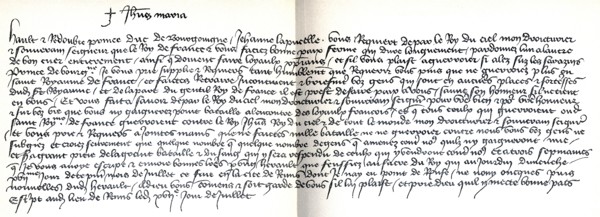 ✝ Jhesus maria
Hault et redoubte prince duc de Bourgoingne, Jehanne la pucelle vous requiert de par le Roy du ciel mon droicturier
et souverain seigneur que le Roy de France et vous faciez bonne paix ferme qui dure longuement, pardonnez lun a lautre
de bon cuer entierement, ainsi que doivent faire loyaulx xprians, et sil vous plaist a guerroier si alez sur les sarrazins
Prince de bourgne Je vous prie supplie et requiers tant humblement que requerir vous puis que ne guerroiez plus ou
saint Royaume de france et faictes Retraire incontinent et briefment voz gens qui sont en aucunes places et forteresses
dud st Royaume, et de la part du gentil Roy de france il est prest de faire paix a vous, sauve son honneur sil ne tient
en vous, Et vous faiz assavoir de par le Roy du ciel mon droicturier et souverain seigneur pour vre bien et pour vre honneur
et sur voz vie que vous ny gaignerez point bataille a lencontre des loyaulx francois, et que tous ceulx qui guerroient oud
saint Royme de france guerroient contre le Roy Jhus Roy du ciel et de tout le monde mon droicturier et souverain seigneur
et vous prie et requiers a Jointes mains que ne faictes nulle bataille ne ne guerroiez contre nous vous voz gens ne
subgiez et croiez seurement que quelque nombre de gens que amenez contre nous quilz ny gaigneront mie
et sera grant pitie de la grant bataille et du sanc qui y sera respendu de ceulx qui y vendront contre nous et a trois sepmaines
que Je vous avoie escript et envoie bonnes lettres par ung herault que feussiez au sacre du Roy qui aujourdui dimenche
xvije jour de ce present mois de Juillet ce fait en la cite de Reims dont Je nay eu point de Response ne noy oncques puis
nouvelles dud herault, A dieu vous commens et soit garde de vous sil lui plaist, et prie dieu quil y mecte bonne paix
Escript aud lieu de Reims led xvije jour de Juillet